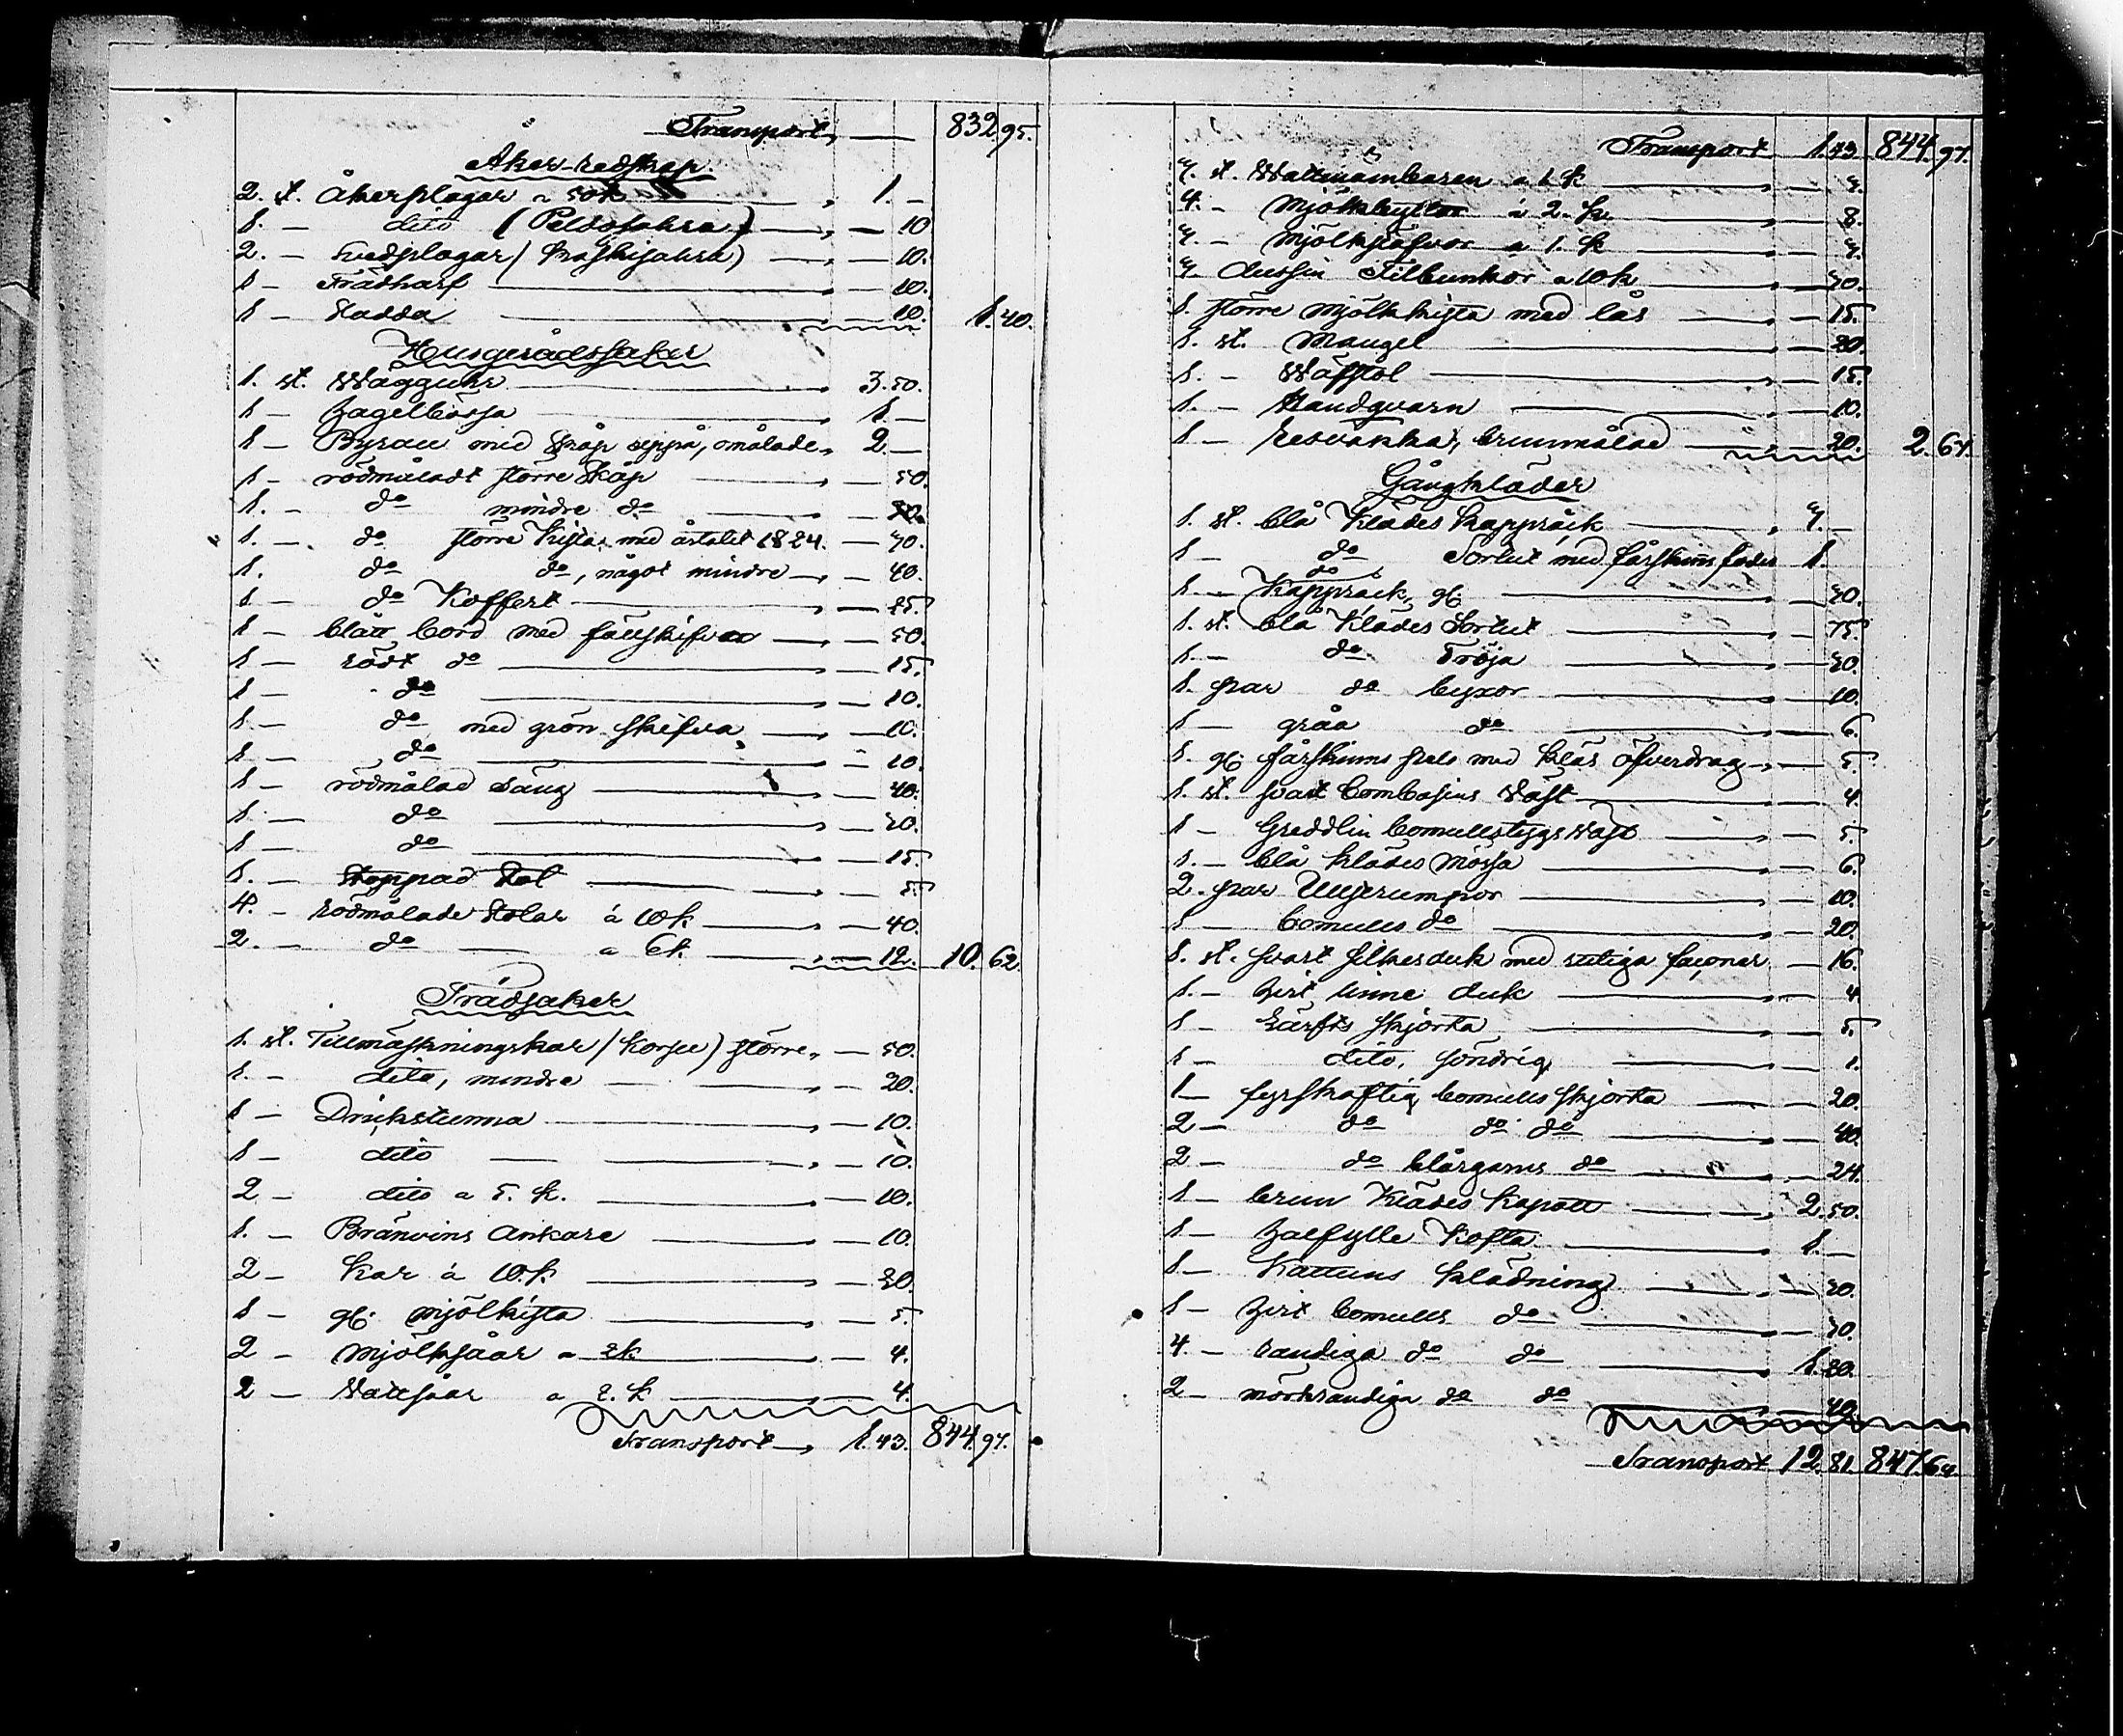 Transport, — 832.95.
Åker-redskap.
2. st. Åkerplogar a 50 k — 1. —
1. — dito (Peldosahra) — 10
2. — Svedplogar (Kaskisahra) — 10.
1 — Trädharf — 10.
1 — Sladda — 10. 1.40.
Husgerådssaker
1. st. Wägguhr — 3.50.
1 — hagelbössa — 1. —
1 — Byrau med skåp uppå, omålade, 2. —
1 — rödmåladt större Skåp — 50.
1. — do mindre do — 30.
1. — do större Kista, med årtalet 1824. — 70.
1. do do, något mindre — 40.
1 — do Koffert — 25.
1 — blått bord med fällskifvor — 50.
1 — rödt do — 15.
1 — do — 10.
1 — do med grön skifva — 10.
1 — do — 10.
1 — rödmålad Säng — 40.
1. — do — 20.
1 — do — 15.
1. — Stoppad Stol — 5.
4. — rödmålade Stolar á 10 k — 40.
2. — do — a 6 k. — 12. 10.62.
Trädsaker
1. st. Tillmäskningskar (Korju) större, — 50.
1. — dito, mindre — 20.
1 — Drickstunna — 10.
1 — dito — 10.
2 — dito a 5. k. — 10.
1. — Bränvins Ankare — 10.
2 — Kar á 10. k. — 20.
1 — gl. mjölkista — 5.
2 — Mjölksåar a 2 k — 4.
2 — Vattsåar a 2. k — 4.
Transport —, 1.43. 844.97.
Transport 1.43. 844.97.
4. st. Wattuämbaren a 1 k — 4.
4. — Mjölkbyttor á 2. k. — 8.
4. — Mjölkstäfvor a 1. k — 4.
4 dussin Filbunkor a 10 k — 40.
1. större Mjölkkista med lås — 15.
1. st. Mangel — 20.
1. — Wäfstol — 15.
1. — Handqvarn — 10.
1 — Resvakka, brunmålad — 20. 2.67.
Gångkläder
1. st. blå Klädes kappråck — 4. —
1 — do Sortut med fårskinns foder 1.
1. — do Kappråck, gl. — 40.
1. st. blå Klädes Sortut — 75.
1. — do Tröja — 30.
1. par do byxor — 10.
1 — gråa do — 6.
1. gl. fårskinns pels med kläs öfverdrag — 5.
1. st. svart Combasins Väst — 4.
1 — Greddlin bomullstygs Väst — 5.
1. — blå klädes Mössa — 6.
2. par Ullstrumpor — 10.
1 — bomulls do — 20.
1. st. svart silkesduk med rutiga façoner — 16.
1. — hvit linne duk — 4
1 — Lärfts skjorta — 5.
1 — dito, söndrig — 1.
1 — fyrskaftig bomulls skjorta — 20.
2 — do do do — 40.
2 — do blårgarns do — 24.
1 — brun Klädes kapott — 2.50.
1 — halfylle Kofta — 1. —
1 — Kattuns klädning — 30.
1 — hvit bomulls do — 70.
4. — randiga do do — 1.20.
2 — mörkrandiga do do — 40.
Transport 12.81. 847.64.